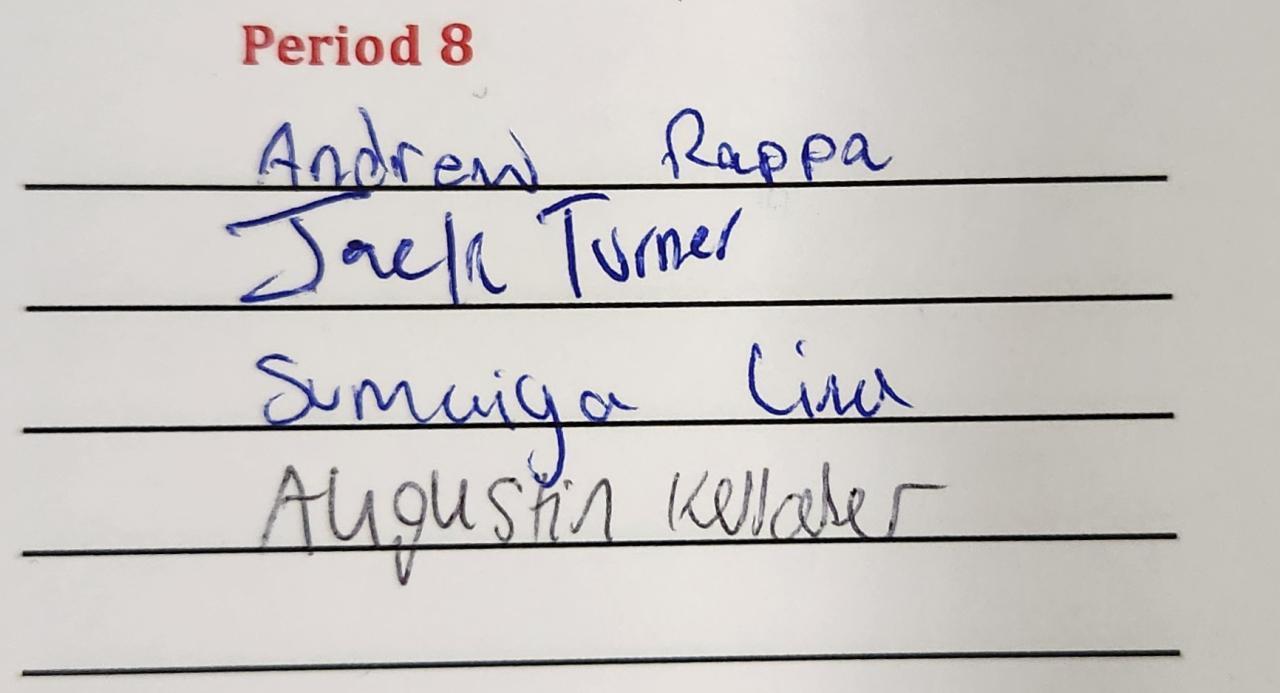 Period 8
Andrew Rappa
Jack Turner
Sumaiya
Augustin Kellaher